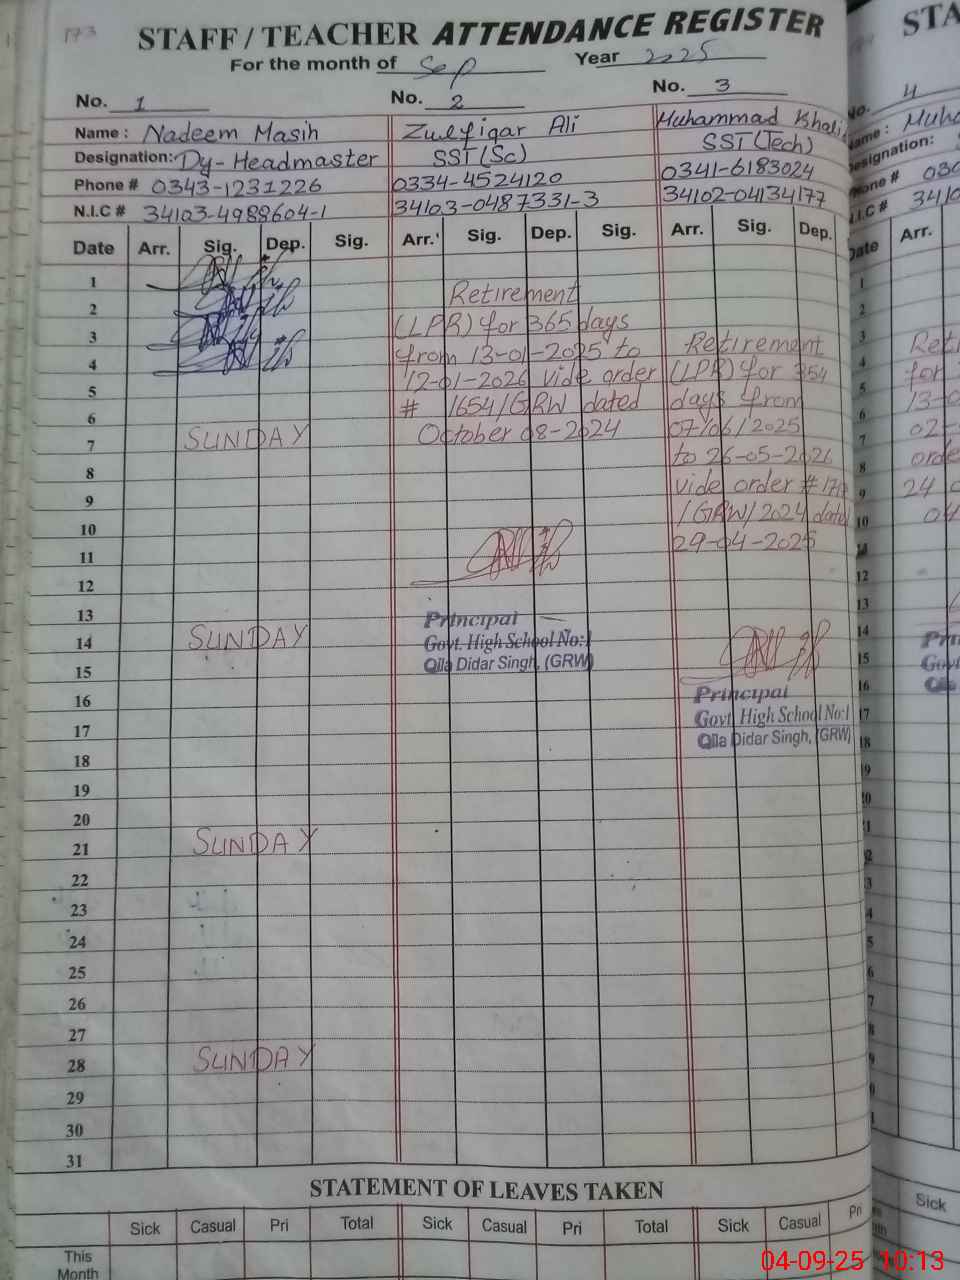 173
STAFF / TEACHER ATTENDANCE REGISTER
For the month of Sep Year 2025
No. 1 No. 2 No. 3
Name : Nadeem Masih Zulfiqar Ali Muhammad Khalid
Designation: Dy-Headmaster SST(Sc) SST(Tech)
Phone # 0343-1231226 0334-4524120 0341-6183024
N.I.C # 34103-4988604-1 34103-0487331-3 34102-04134177
Date Arr. Sig. Dep. Sig. Arr. Sig. Dep. Sig. Arr. Sig. Dep.
1
2
3
4
5
6
7 SUNDAY
8
9
10
11
12
13
14 SUNDAY
15
16
17
18
19
20
21 SUNDAY
22
23
24
25
26
27
28 SUNDAY
29
30
31
Retirement
(LPR) for 365 days
from 13-01-2025 to
12-01-2026 vide order
# 1654/GRW dated
October 08-2024
Principal
Govt. High School No:1
Qila Didar Singh, (GRW)
Retirement
(LPR) for 354
days from
07/06/2025
to 26-05-2026
vide order
/GRW/2024 dated
29-04-2025
Principal
Govt. High School No:1
Qila Didar Singh, (GRW)
STATEMENT OF LEAVES TAKEN
Sick Casual Pri Total Sick Casual Pri Total Sick Casual Pri
This
Month
STA
4
Arr.
Sick
04-09-25 10:13